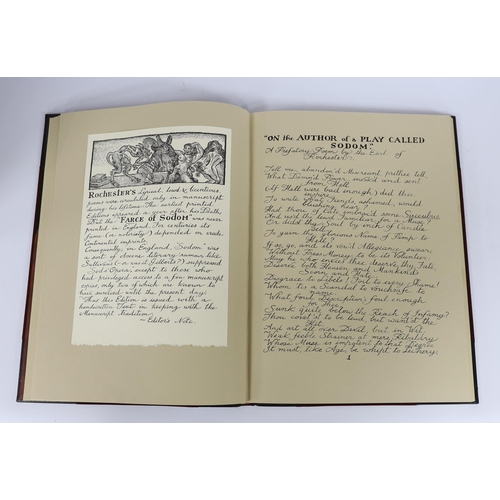 ROCHESTER'S Lyrical, lewd & licentious
poems were circulated only in manuscript
during his lifetime. The earliest printed
Editions appeared a year after his Death,
But the "FARCE of SODOM" was never
printed in England. For centuries its
fame (or notoriety) depended on crude
Continental imprints.
Consequently, in England, "Sodom" was
a sort of obscene literary rumour, like
Sullivan's (or was it Gilbert's?) suppressed
Sod's Opera, except to those who
had privileged access to a few manuscript
copies, only two of which are known to
have survived until the present day.
Thus this Edition is issued with a
handwritten Text in keeping with the
Manuscript tradition.
Editor's Note.
"ON the AUTHOR of a PLAY CALLED
SODOM"
A Prefatory Poem by the Earl of
Rochester.
Tell me, abandon'd Miscreant, prithee tell,
What Damn'd Power, invok'd and sent
from Hell
(If Hell were bad enough) did thee
inspire
To write what Fiends, ashamed, would
blushing hear
Had those of late embrac'd some Succubus
And us'd the lewd Familiar for a Muse?
Or didst thy Soul by inch of Candle
Sell
To gain the glorious Name of Pimp to
Hell?
If so, go, and its vow'd Allegiance swear,
Without Press-Money, be its Volunteer.
May he who envies thee deserve thy Fate,
Deserve both Heaven and Mankind's
Scorn and Hate.
Disgrace to Libels! Foil to very Shame!
Whom 'tis a Scandal to vouchsafe to
What foul Description's foul enough
for Thee,
Sunk quite below the Reach of Infamy?
Thou covet'st to be lewd, but want'st the
And art all over Devil, but in Wit.
Weak, feeble Strainer at mere Ribaldry
Whose Muse is impotent to that Degree
It must, like Age, be whipt to Lechery.
1